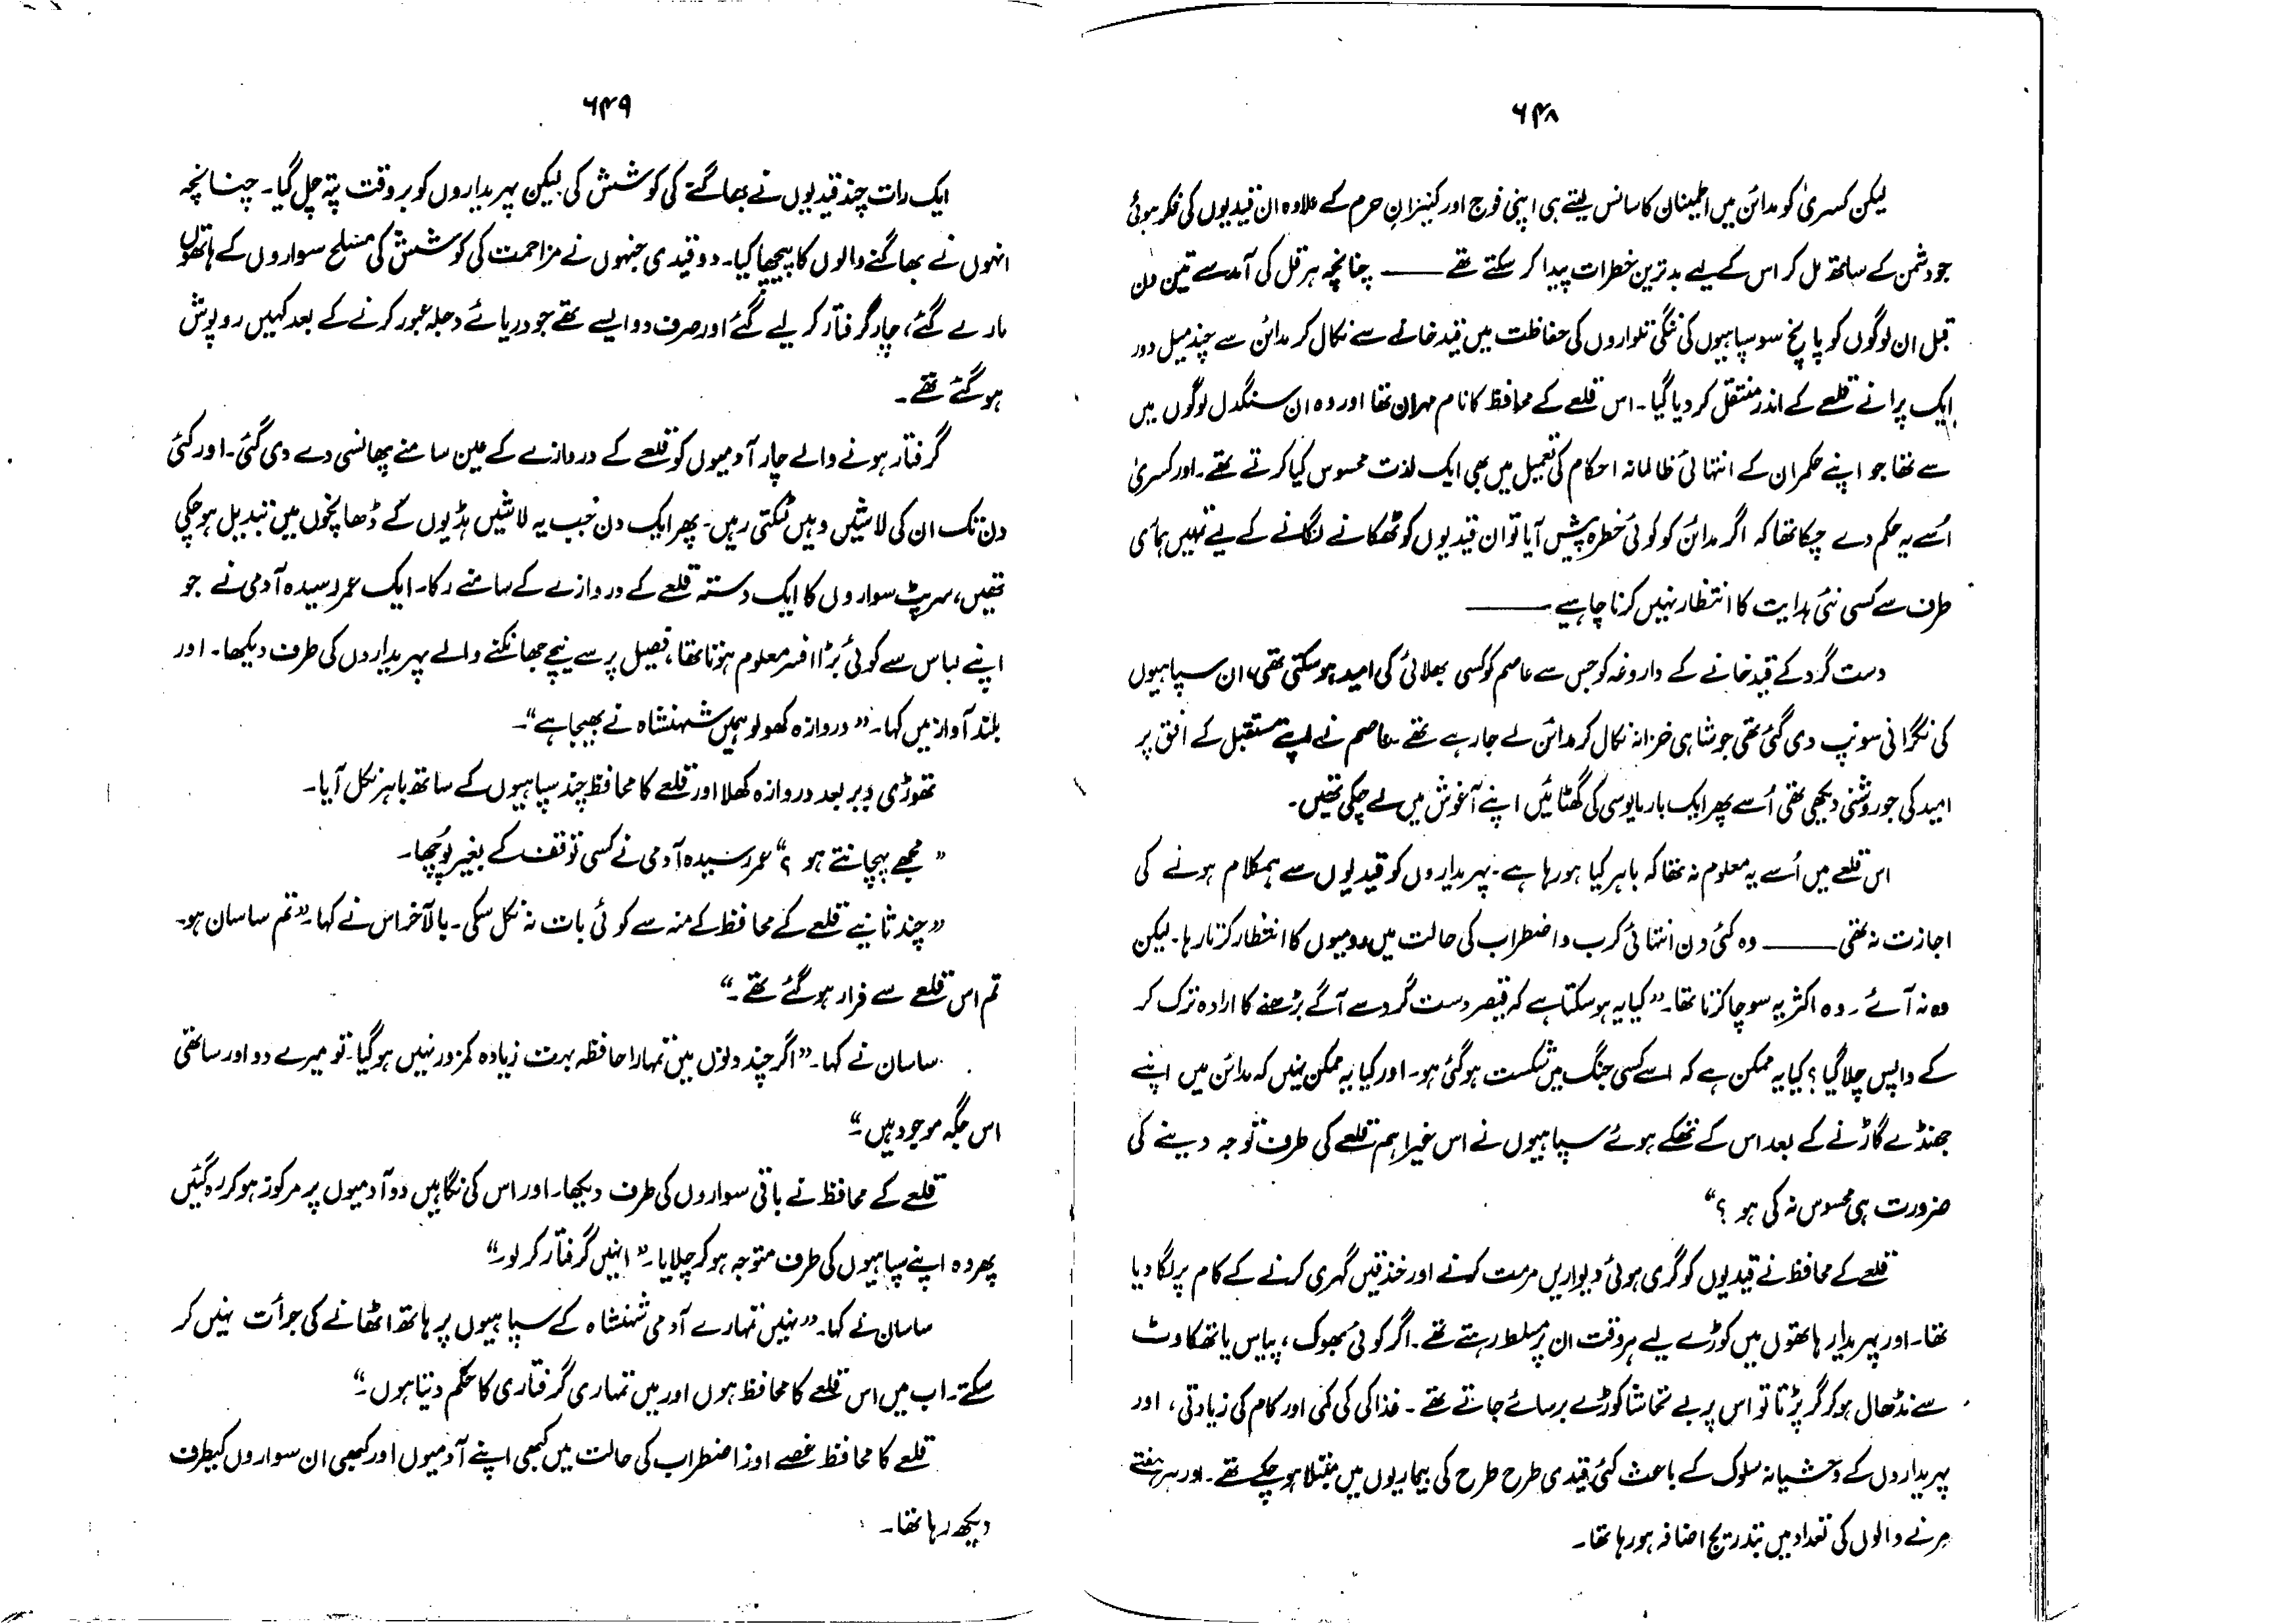 ۶۴۸
لیکن کسریٰ کو مدائن میں اطمینان کا سانس لیتے ہی اپنی فوج اور کنیزانِ حرم کے علاوہ ان قیدیوں کی فکر ہوئی
جو دشمن کے ساتھ مل کر اس کے لیے بدترین خطرات پیدا کر سکتے تھے ــــــ چنانچہ ہرقل کی آمد سے تین دن
قبل ان لوگوں کو پانچ سو سپاہیوں کی ننگی تلواروں کی حفاظت میں قید خانے سے نکال کر مدائن سے چند میل دور
ایک پرانے قلعے کے اندر منتقل کر دیا گیا۔ اس قلعے کے محافظ کا نام مہران تھا اور وہ ان سنگدل لوگوں میں
سے تھا جو اپنے حکمران کے انتہائی ظالمانہ احکام کی تعمیل میں بھی ایک لذت محسوس کیا کرتے تھے۔ اور کسریٰ
اُسے یہ حکم دے چکا تھا کہ اگر مدائن کو کوئی خطرہ پیش آیا تو ان قیدیوں کو ٹھکانے لگانے کے لیے تمہیں ہماری
طرف سے کسی نئی ہدایت کا انتظار نہیں کرنا چاہیے ــــــ
دست گرد کے قید خانے کے داروغہ کو جس سے عاصم کو کسی بھلائی کی امید ہو سکتی تھی، ان سپاہیوں
کی نگرانی سونپ دی گئی تھی جو شاہی خزانہ نکال کر مدائن لے جا رہے تھے۔ عاصم نے اپنے مستقبل کے افق پر
امید کی جو روشنی دیکھی تھی اُسے پھر ایک بار مایوسی کی گھٹائیں اپنے آغوش میں لے چکی تھیں۔
اس قلعے میں اُسے یہ معلوم نہ تھا کہ باہر کیا ہو رہا ہے۔ پہریداروں کو قیدیوں سے ہمکلام ہونے کی
اجازت نہ تھی ــــــ وہ کئی دن انتہائی کرب و اضطراب کی حالت میں رومیوں کا انتظار کرتا رہا۔ لیکن
وہ نہ آئے۔ وہ اکثر یہ سوچا کرتا تھا۔ ”کیا یہ ہو سکتا ہے کہ قیصر دست گرد سے آگے بڑھنے کا ارادہ ترک کر
کے واپس چلا گیا؟ کیا یہ ممکن ہے کہ اسے کسی جنگ میں شکست ہو گئی ہو۔ اور کیا یہ ممکن نہیں کہ مدائن میں اپنے
جھنڈے گاڑنے کے بعد اس کے تھکے ہوئے سپاہیوں نے اس غیر اہم قلعے کی طرف توجہ دینے کی
ضرورت ہی محسوس نہ کی ہو؟“
قلعے کے محافظ نے قیدیوں کو گری ہوئی دیواریں مرمت کرنے اور خندقیں گہری کرنے کے کام پر لگا دیا
تھا۔ اور پہریدار ہاتھوں میں کوڑے لیے ہر وقت ان پر مسلط رہتے تھے۔ اگر کوئی بھوک، پیاس یا تھکاوٹ
سے نڈھال ہو کر گر پڑتا تو اس پر بے تحاشا کوڑے برسائے جاتے تھے۔ غذا کی کی کمی اور کام کی زیادتی، اور
پہریداروں کے وحشیانہ سلوک کے باعث کئی قیدی طرح طرح کی بیماریوں میں مبتلا ہو چکے تھے۔ اور ہر ہفتے
مرنے والوں کی تعداد میں بتدریج اضافہ ہو رہا تھا۔
۶۴۹
ایک رات چند قیدیوں نے بھاگنے کی کوشش کی لیکن پہریداروں کو بروقت پتہ چل گیا۔ چنانچہ
انہوں نے بھاگنے والوں کا پیچھا کیا۔ دو قیدی جنہوں نے مزاحمت کی کوشش کی مسلح سواروں کے ہاتھوں
مارے گئے، چار گرفتار کر لیے گئے اور صرف دو ایسے تھے جو دریائے دجلہ عبور کرنے کے بعد کہیں روپوش
ہو گئے تھے۔
گرفتار ہونے والے چار آدمیوں کو قلعے کے دروازے کے عین سامنے پھانسی دے دی گئی۔ اور کئی
دن تک ان کی لاشیں وہیں لٹکتی رہیں۔ پھر ایک دن جب یہ لاشیں ہڈیوں کے ڈھانچوں میں تبدیل ہو چکی
تھیں، سرپٹ سواروں کا ایک دستہ قلعے کے دروازے کے سامنے رکا۔ ایک عمر رسیدہ آدمی نے جو
اپنے لباس سے کوئی بڑا افسر معلوم ہوتا تھا، فصیل پر سے نیچے جھانکنے والے پہریداروں کی طرف دیکھا۔ اور
بلند آواز میں کہا۔ ”دروازہ کھولو ہمیں شہنشاہ نے بھیجا ہے“۔
تھوڑی دیر بعد دروازہ کھلا اور قلعے کا محافظ چند سپاہیوں کے ساتھ باہر نکل آیا۔
”مجھے پہچانتے ہو؟“ عمر رسیدہ آدمی نے کسی توقف کے بغیر پُوچھا۔
”چند ثانیے قلعے کے محافظ کے منہ سے کوئی بات نہ نکل سکی۔ بالآخر اس نے کہا۔ ”تم ساسان ہو۔
تم اس قلعے سے فرار ہو گئے تھے۔“
ساسان نے کہا۔ ”اگر چند دنوں میں تمہارا حافظہ بہت زیادہ کمزور نہیں ہو گیا۔ تو میرے دو اور ساتھی
اس جگہ موجود ہیں۔“
قلعے کے محافظ نے باقی سواروں کی طرف دیکھا۔ اور اس کی نگاہیں دو آدمیوں پر مرکوز ہو کر رہ گئیں
پھر وہ اپنے سپاہیوں کی طرف متوجہ ہو کر چلایا۔ ”انہیں گرفتار کر لو۔“
ساسان نے کہا۔ ”نہیں تمہارے آدمی شہنشاہ کے سپاہیوں پر ہاتھ اٹھانے کی جرأت نہیں کر
سکتے۔ اب میں اس قلعے کا محافظ ہوں اور میں تمہاری گرفتاری کا حکم دیتا ہوں۔“
قلعے کا محافظ غصے اور اضطراب کی حالت میں کبھی اپنے آدمیوں اور کبھی ان سواروں کیطرف
دیکھ رہا تھا۔